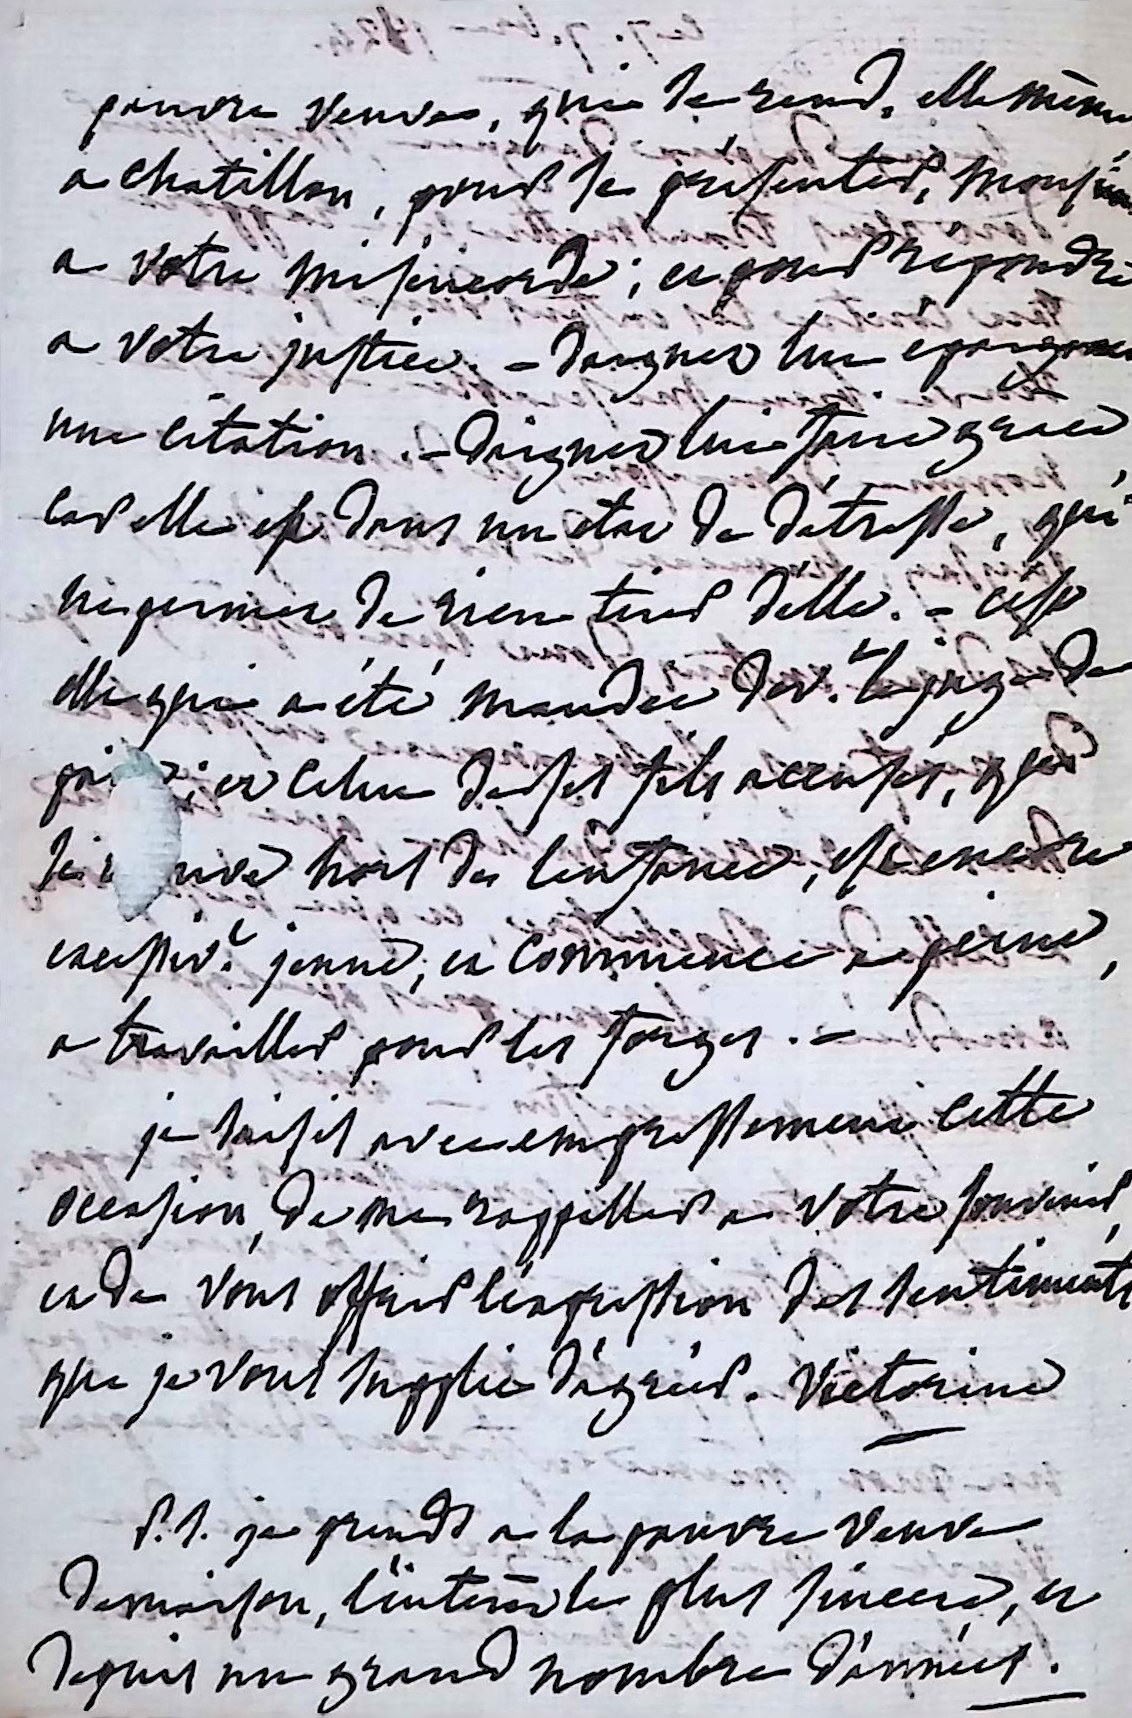 pauvre veuve, qui se rend, elle même
a chatillon, pour se présenter, Monsieur
a votre miséricorde; et pour repondre
a votre justice. - Daignez lui epargner
une citation. - Daignez lui faire grace
car elle est dans un etat de détresse, qui
ne permet de rien tirer d'elle. - c'est
elle qui a été mandée dev.t le juge de
paix; et celui de ses fils accusés, qui
se trouve hors de l'enfance, est encore
excessiv.t jeune, et commence a peine,
a travailler pour les forges. -
je saisis avec empressement cette
occasion, de me rappeller a votre souvenir,
et de vous offrir l'expression des sentiments
que je vous supplie d'agréer. Victorine
P.S. je prends a la pauvre veuve
Demaison, l'intérêt le plus sincere, et
depuis un grand nombre d'années.